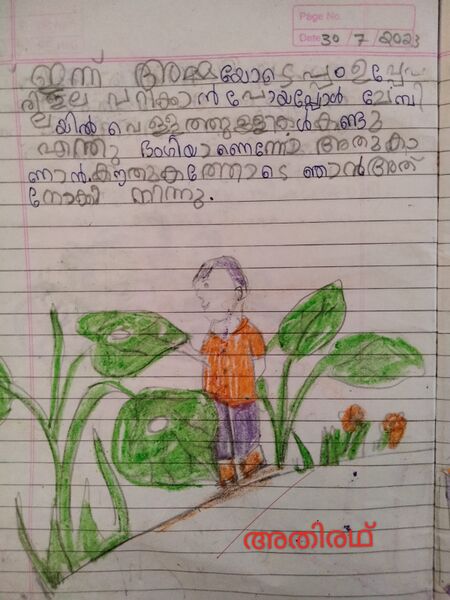 Page No.
Date 30 / 7 / 2023
ഇന്ന് അമ്മയോടൊപ്പം ഉപ്പേ
രിയില പറിക്കാൻ പോയപ്പോൾ ചേമ്പി
ലയിൽ വെള്ളത്തുള്ളികൾ കണ്ടു
എന്തു ഭംഗിയാണെന്നോ അതുകാ
ണാൻ. കൗതുകത്തോടെ ഞാൻ അത്
നോക്കി നിന്നു.
അതിരഥ്